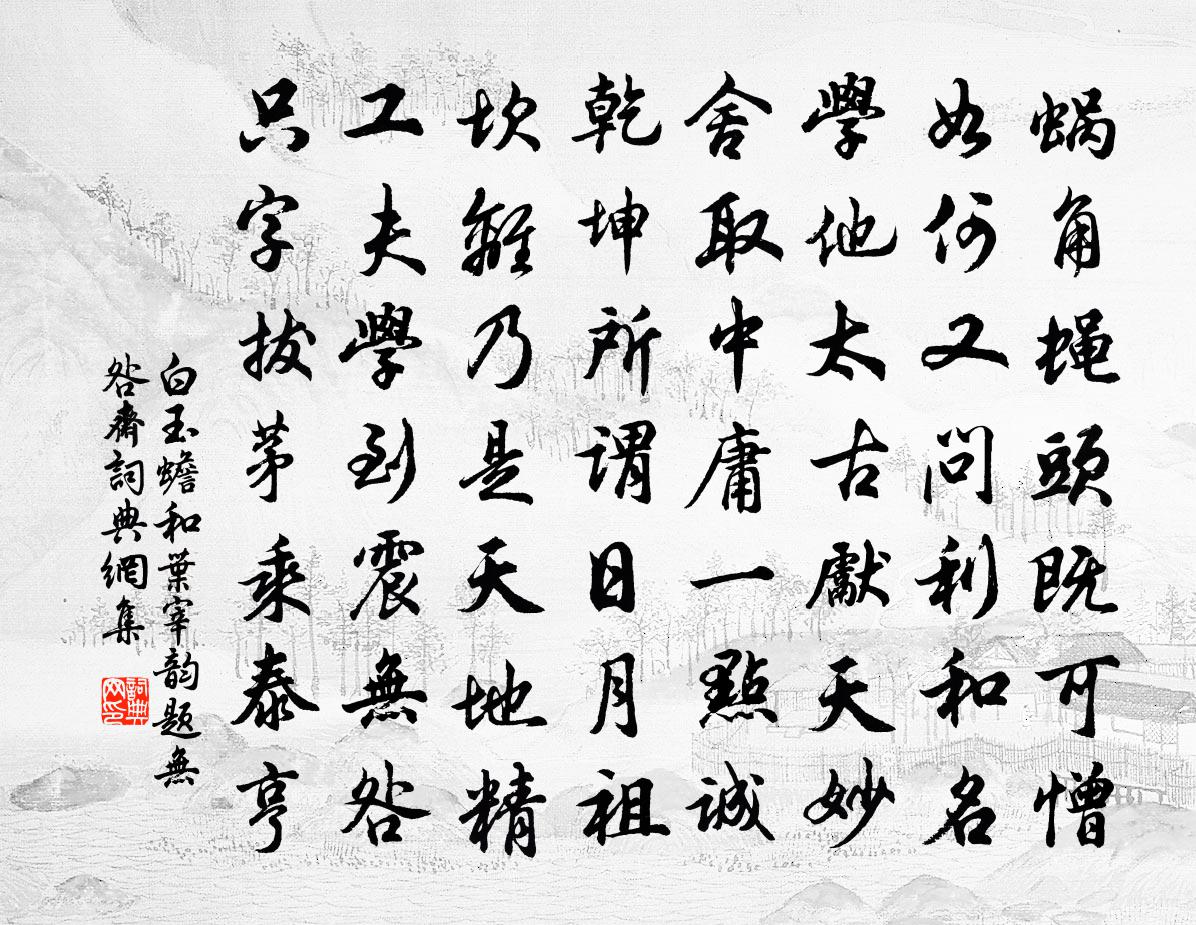 蜗角蝇頭既可憎
如何又問利和名
學他太古獻天妙
舍取中庸一點誠
乾坤所謂日月祖
坎離乃是天地精
工夫學到震無咎
只字拔茅乘泰亨
白玉蟾和葉宰韵題無
咎齋詞典網集
詞典
网印